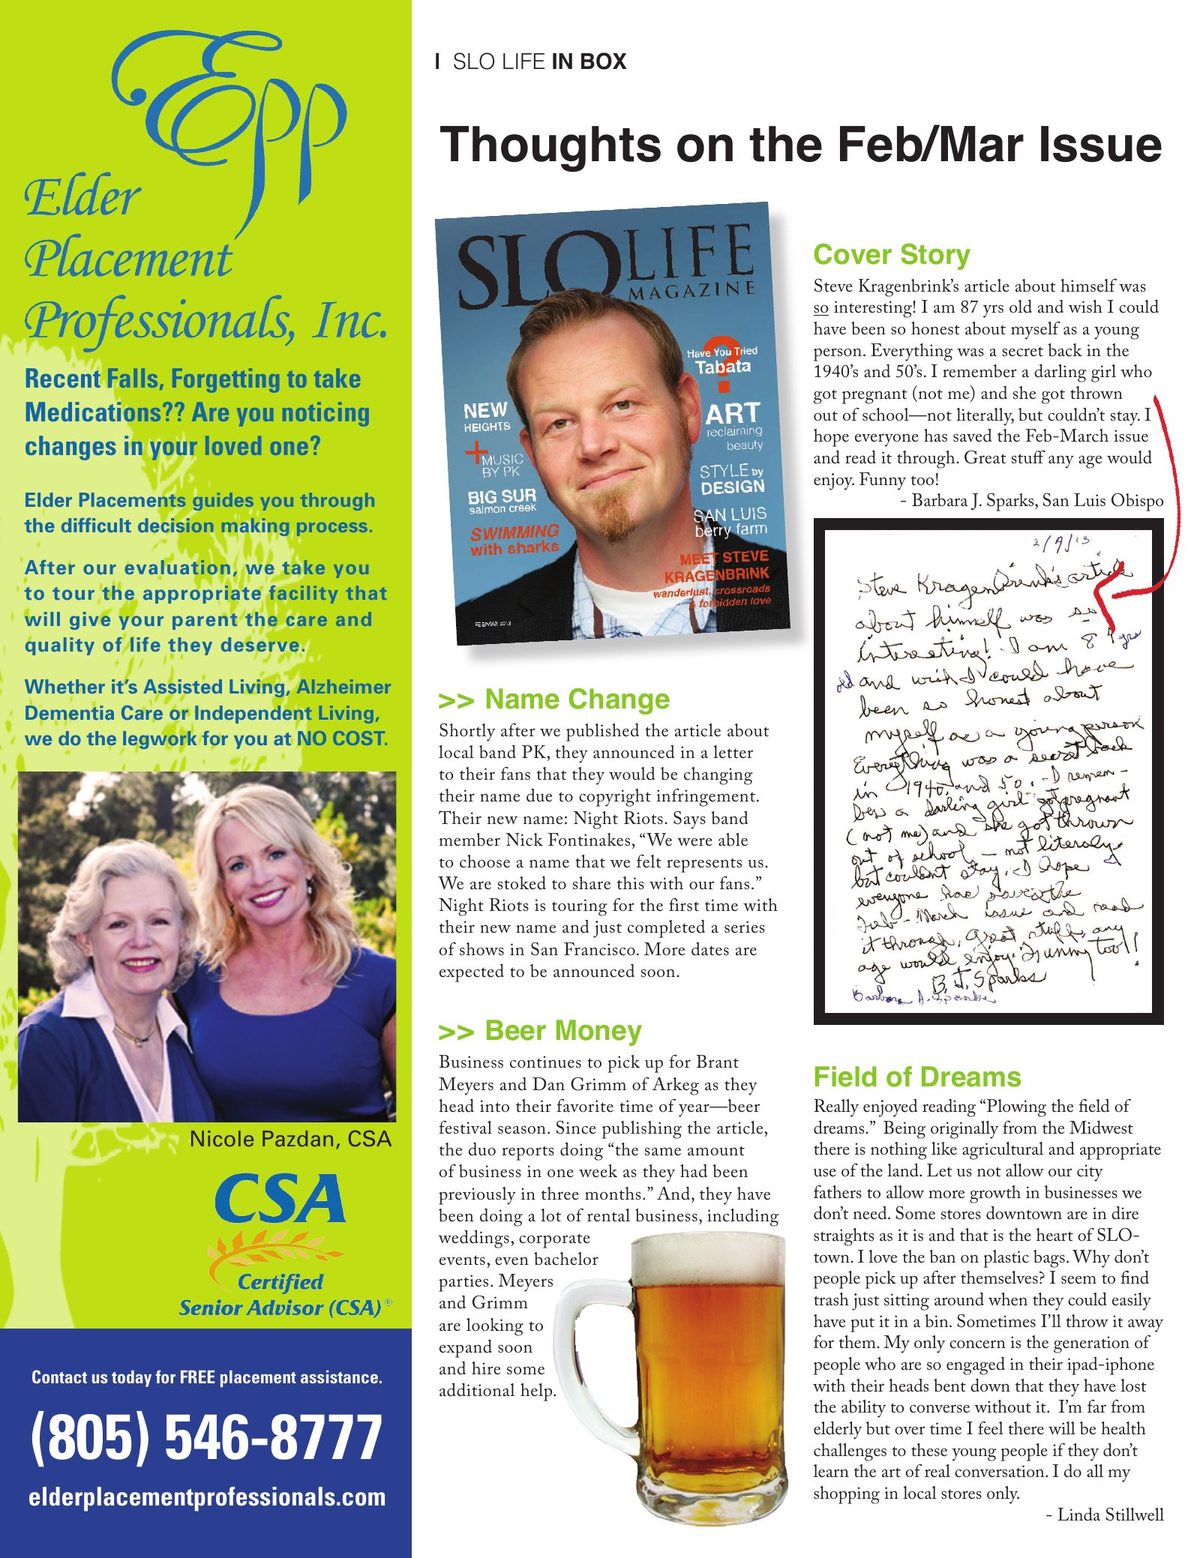 Epp
Elder
Placement
Professionals, Inc.
Recent Falls, Forgetting to take
Medications?? Are you noticing
changes in your loved one?
Elder Placements guides you through
the difficult decision making process.
After our evaluation, we take you
to tour the appropriate facility that
will give your parent the care and
quality of life they deserve.
Whether it’s Assisted Living, Alzheimer
Dementia Care or Independent Living,
we do the legwork for you at NO COST.
Nicole Pazdan, CSA
CSA
Certified
Senior Advisor (CSA)®
Contact us today for FREE placement assistance.
(805) 546-8777
elderplacementprofessionals.com
| SLO LIFE IN BOX
Thoughts on the Feb/Mar Issue
SLO LIFE
MAGAZINE
Have You Tried
Tabata
?
NEW
HEIGHTS
+
MUSIC
BY PK
BIG SUR
salmon creek
SWIMMING
with sharks
ART
reclaiming
beauty
STYLE by
DESIGN
SAN LUIS
berry farm
MEET STEVE
KRAGENBRINK
wanderlust, crossroads
& forbidden love
FEB/MAR 2013
>> Name Change
Shortly after we published the article about
local band PK, they announced in a letter
to their fans that they would be changing
their name due to copyright infringement.
Their new name: Night Riots. Says band
member Nick Fontinakes, “We were able
to choose a name that we felt represents us.
We are stoked to share this with our fans.”
Night Riots is touring for the first time with
their new name and just completed a series
of shows in San Francisco. More dates are
expected to be announced soon.
>> Beer Money
Business continues to pick up for Brant
Meyers and Dan Grimm of Arkeg as they
head into their favorite time of year—beer
festival season. Since publishing the article,
the duo reports doing “the same amount
of business in one week as they had been
previously in three months.” And, they have
been doing a lot of rental business, including
weddings, corporate
events, even bachelor
parties. Meyers
and Grimm
are looking to
expand soon
and hire some
additional help.
Cover Story
Steve Kragenbrink’s article about himself was
so interesting! I am 87 yrs old and wish I could
have been so honest about myself as a young
person. Everything was a secret back in the
1940’s and 50’s. I remember a darling girl who
got pregnant (not me) and she got thrown
out of school—not literally, but couldn’t stay. I
hope everyone has saved the Feb-March issue
and read it through. Great stuff any age would
enjoy. Funny too!
- Barbara J. Sparks, San Luis Obispo
2/9/13
Steve KragenBrink's article
about himself was so
interesting! I am 87 yrs
old and wish I could have
been so honest about
myself as a young person
Everything was a secret back
in 1940, and 50. - I remem-
ber a darling girl got pregnant
(not me) and she got thrown
out of school - not literaly
but couldnt stay. I hope
everyone has saved the
Feb - March issue and read
it through. Great stuff, any
age would enjoy. Funny too!
B. J. Sparks
Barbara J. Sparks
Field of Dreams
Really enjoyed reading “Plowing the field of
dreams.” Being originally from the Midwest
there is nothing like agricultural and appropriate
use of the land. Let us not allow our city
fathers to allow more growth in businesses we
don’t need. Some stores downtown are in dire
straights as it is and that is the heart of SLO-
town. I love the ban on plastic bags. Why don’t
people pick up after themselves? I seem to find
trash just sitting around when they could easily
have put it in a bin. Sometimes I’ll throw it away
for them. My only concern is the generation of
people who are so engaged in their ipad-iphone
with their heads bent down that they have lost
the ability to converse without it. I’m far from
elderly but over time I feel there will be health
challenges to these young people if they don’t
learn the art of real conversation. I do all my
shopping in local stores only.
- Linda Stillwell